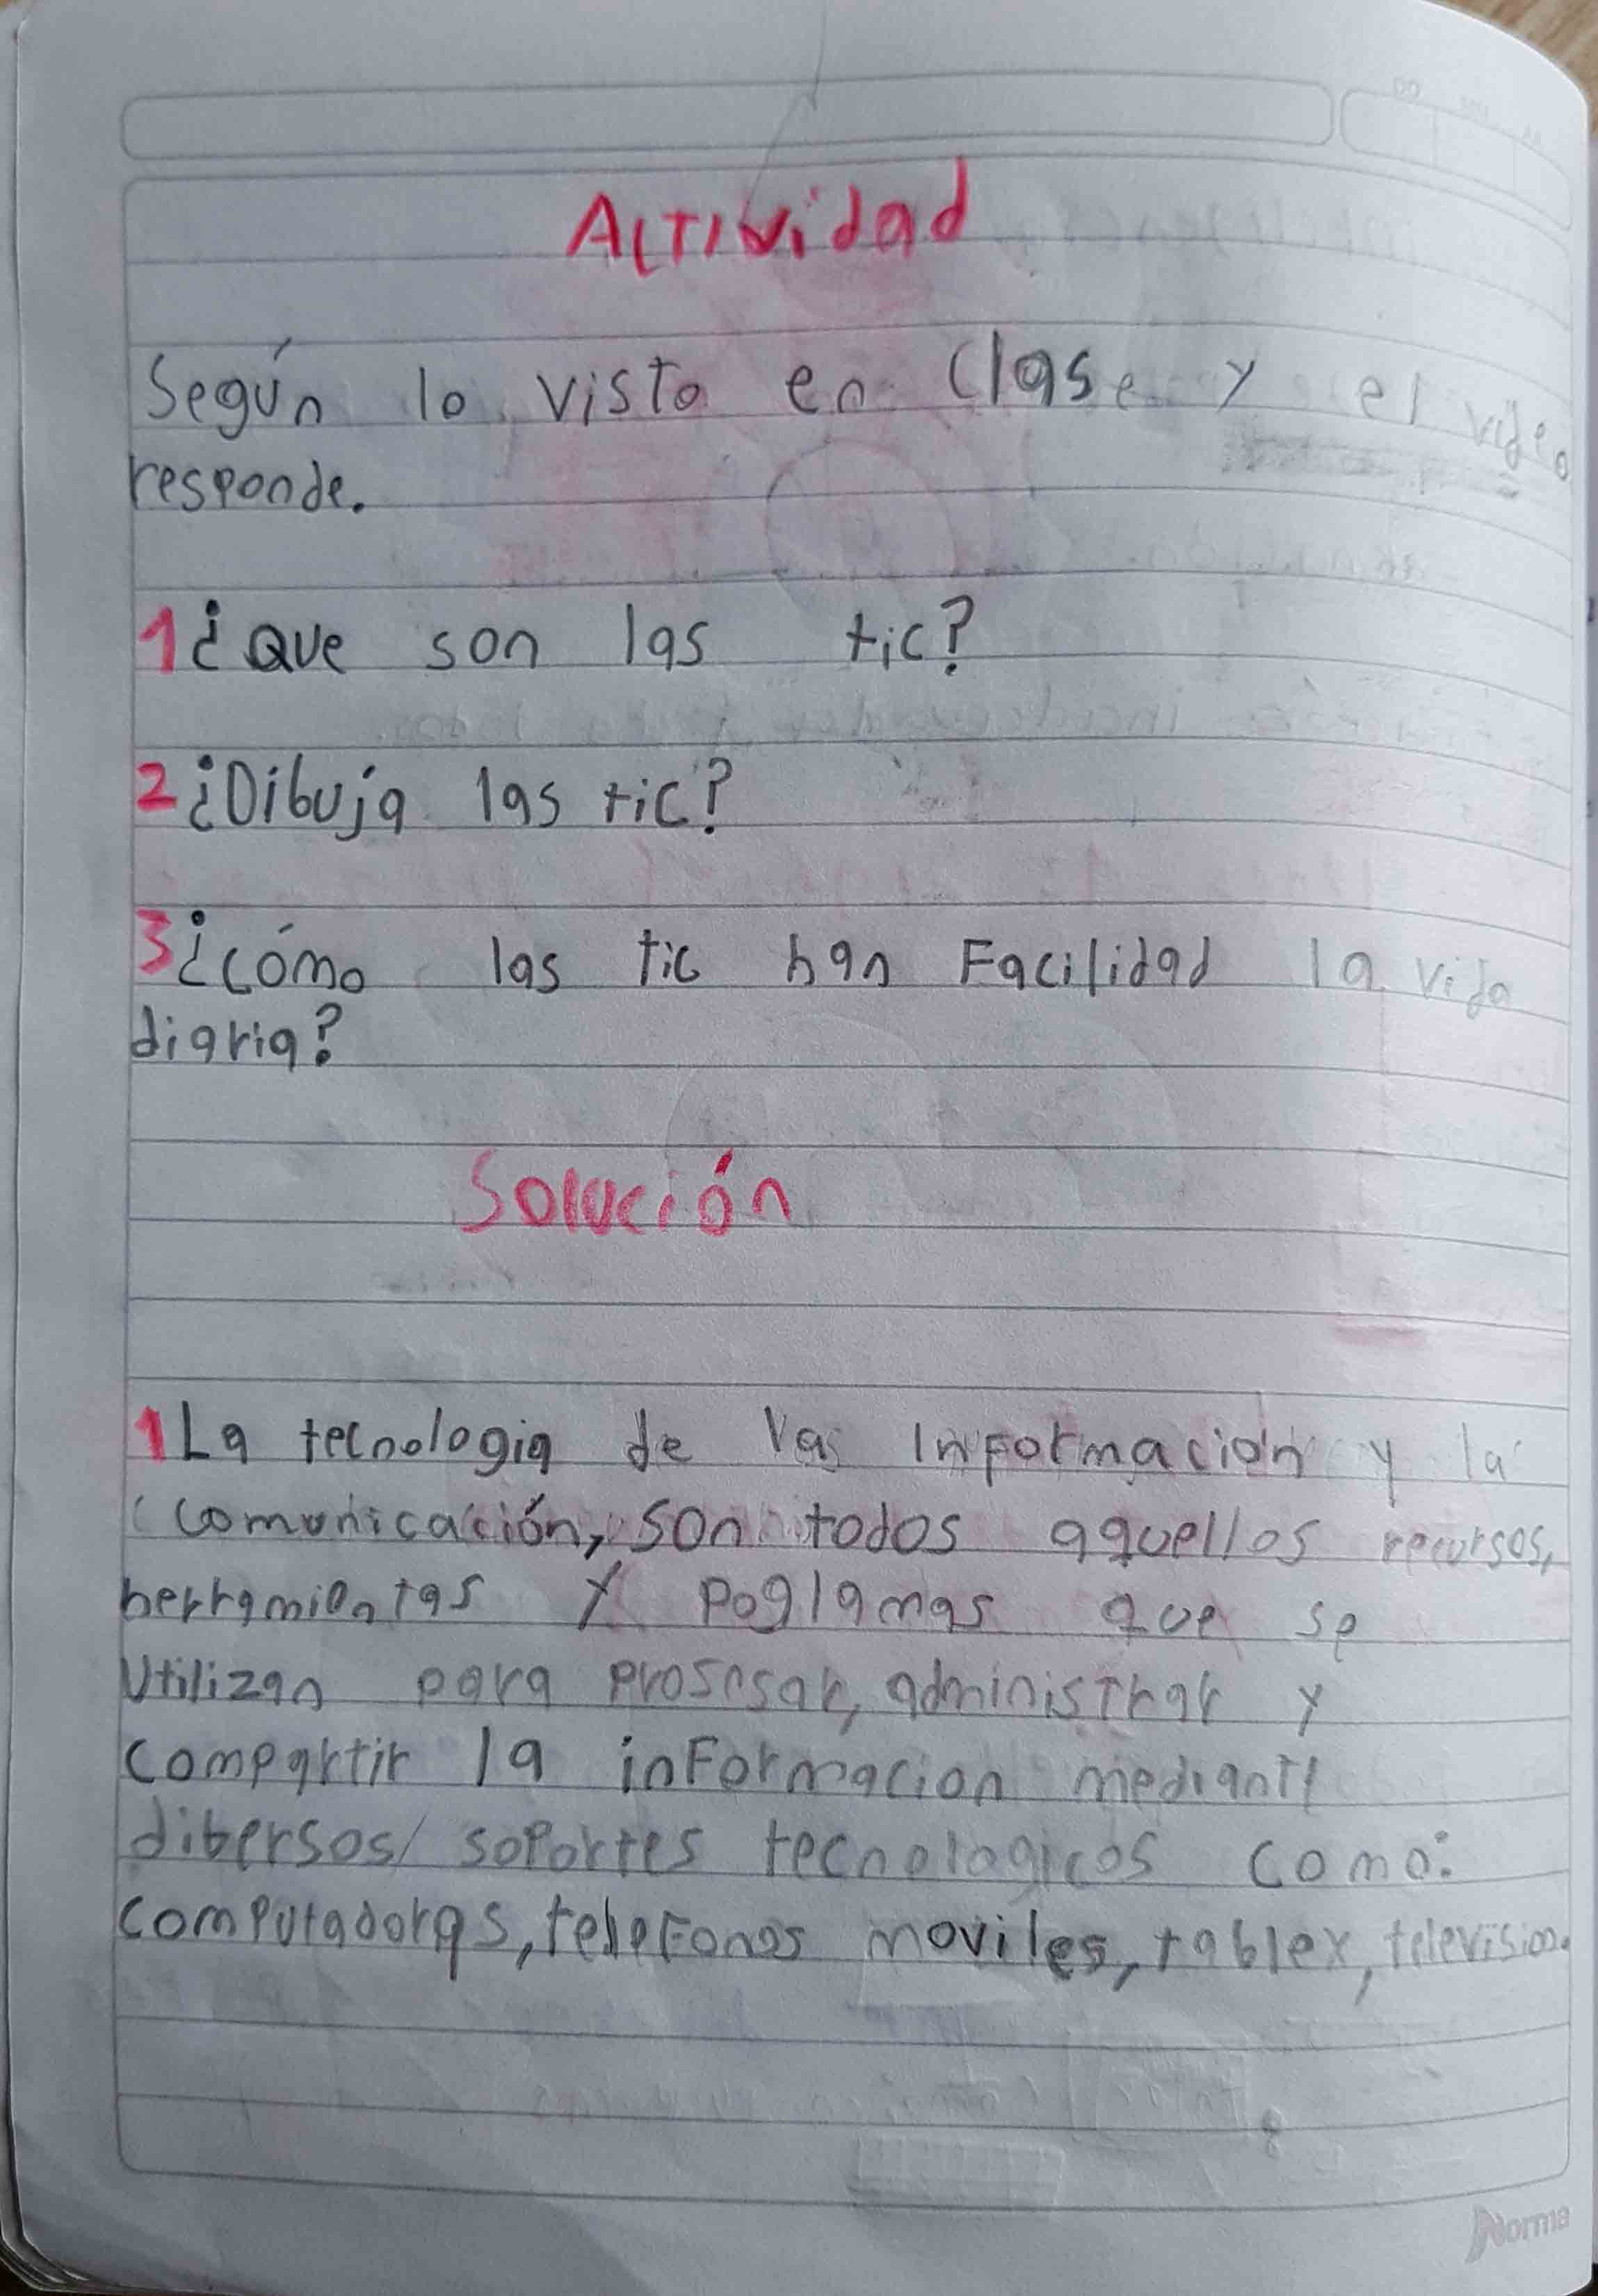 Actividad
Según lo visto en clase y el video
responde.
1 ¿Que son las tic?
2 ¿Dibuja las tic?
3 ¿cómo las tic han Facilidad la vida
diaria?
Solución
1 La tecnologia de las Información y la
comunicación, son todos aquellos recursos,
herramientas y poglamas que se
Utilizan para prosesar, administrar y
compartir la inFormacion mediante
dibersos soportes tecnologicos como:
computadoras, teleFonos moviles, tablex, television.
Norma